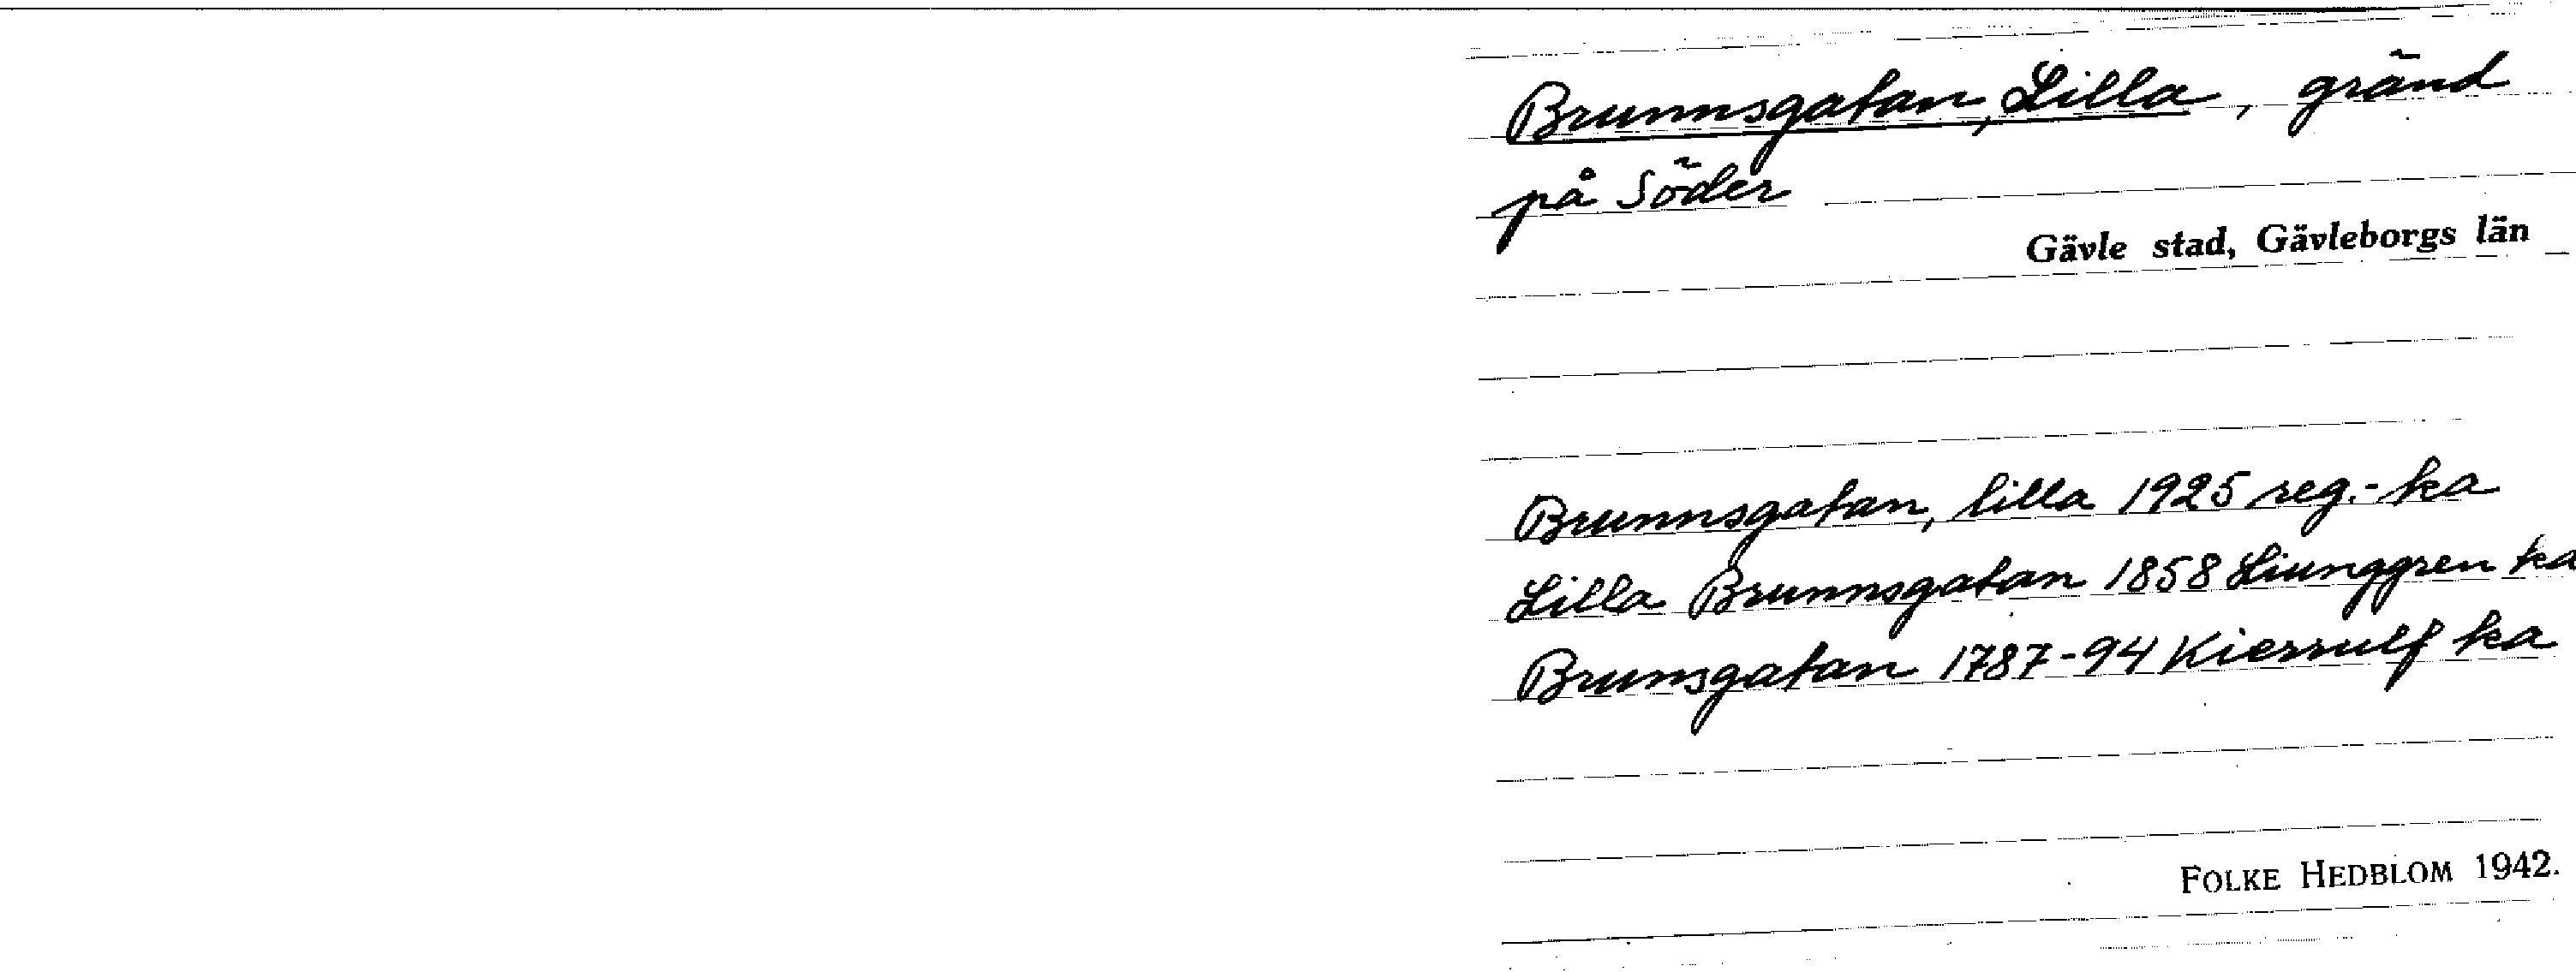 Brunnsgatan, Lilla, gränd
på Söder
Gävle stad, Gävleborgs län
Brunnsgatan, lilla 1925 reg.-ka
Lilla Brunnsgatan 1858 Liunggren ka
Brunsgatan 1787-94 Kierrulf ka
FOLKE HEDBLOM 1942.